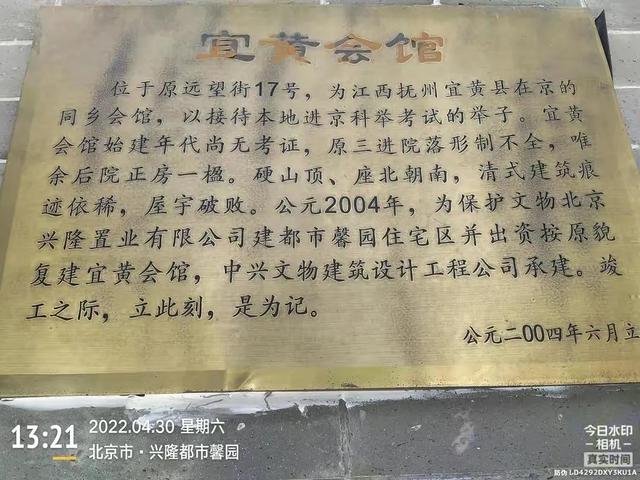 宜黄会馆
位于原远望街17号，为江西抚州宜黄县在京的
同乡会馆，以接待本地进京科举考试的举子。宜黄
会馆始建年代尚无考证，原三进院落形制不全，唯
余后院正房一楹。硬山顶、座北朝南，清式建筑痕
迹依稀，屋宇破败。公元2004年，为保护文物北京
兴隆置业有限公司建都市馨园住宅区并出资按原貌
复建宜黄会馆，中兴文物建筑设计工程公司承建。竣
工之际，立此刻，是为记。
公元二00四年六月立
13:21
2022.04.30 星期六
北京市·兴隆都市馨园
今日水印
-相机-
真实时间
防伪 LD4292DXY3KU1A